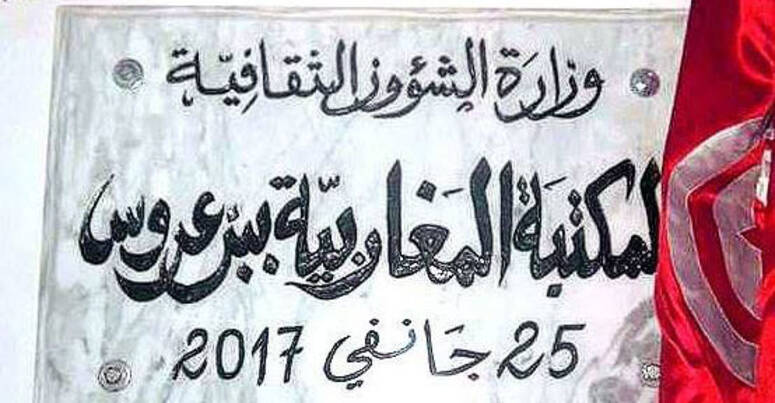 وزارة الشؤون الثقافيّة
المكتبة المغاربيّة ببن عروس
25 جانفي 2017